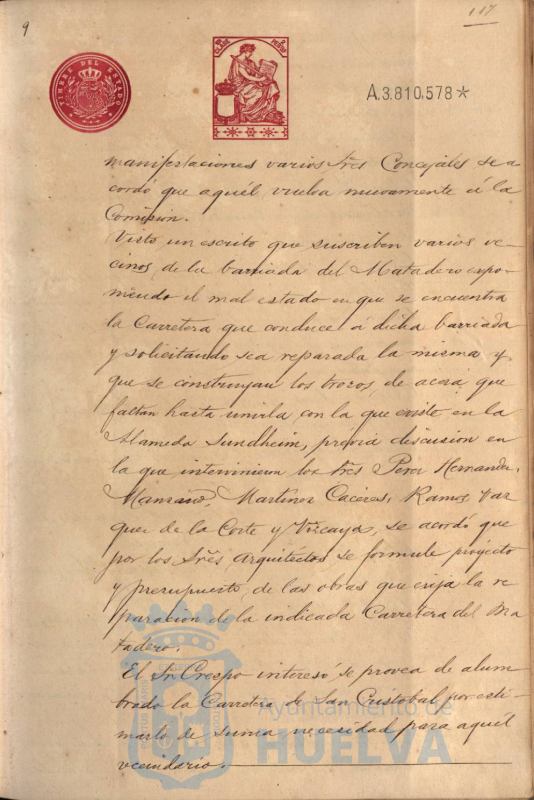 9
117
TIMBRE DEL ESTADO
A.3.810.578*
manifestaciones varios Sres Concejales se a
cordó que aquél vuelva nuevamente á la
Comision.
Visto un escrito que suscriben varios ve-
cinos de la barriada del Matadero expo-
niendo el mal estado en que se encuentra
la Carretera que conduce á dicha barriada
y solicitando sea reparada la misma y
que se construyan los trozos de acera que
faltan hasta unirla con la que existe en la
Alameda Sundheim, previa discusion en
la que intervinieron los Sres Perez Hernandez,
Manzano, Martinez Caceres, Ramos Vaz
quez de la Corte y Vizcaya, se acordó que
por los Sres Arquitectos se formule proyecto
y presupuesto de las obras que exija la re
paracion de la indicada Carretera del Ma
tadero.
El Sr Crespo interesó se provea de alum
brado la Carretera de San Cristobal por esti-
marlo de suma necesidad para aquél
vecindario.
Ayuntamiento de
HUELVA